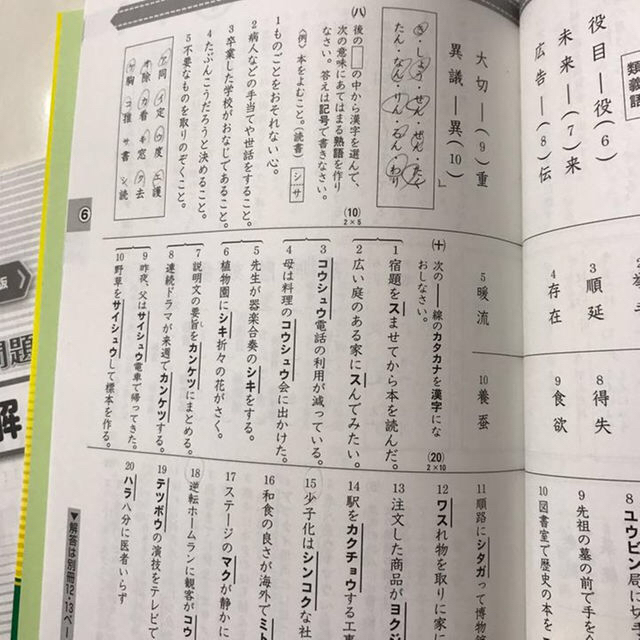 類義語
役目―役(6)
未来―(7)来
広告―(8)伝
大切―(9)重
異議―異(10)
(八) 後の□の中から漢字を選んで、
次の意味にあてはまる熟語を作り
なさい。答えは記号で書きなさい。
(10)
2×5
〈例〉本をよむこと。(読書) シ サ
1 ものごとをおそれない心。
2 病人などの手当てや世話をすること。
3 卒業した学校がおなじであること。
4 たぶんこうだろうと決めること。
5 不要なものを取りのぞくこと。
ア同 イ定 ウ度 エ護
オ除 カ看 キ窓 ク去
ケ胸 コ推 サ書 シ読
6
3 順延
4 存在
5 暖流
8 得失
9 食欲
10 養蚕
(十) 次の――線のカタカナを漢字にな
おしなさい。
(20)
2×10
1 宿題をスませてから本を読んだ。
2 広い庭のある家にスんでみたい。
3 コウシュウ電話の利用が減っている。
4 母は料理のコウシュウ会に出かけた。
5 先生が器楽合奏のシキをする。
6 植物園にシキ折々の花がさく。
7 説明文の要旨をカンケツにまとめる。
8 連続ドラマが来週でカンケツする。
9 昨夜、父はサイシュウ電車で帰ってきた。
10 野草をサイシュウして標本を作る。
8 ユウビン局に
9 先祖の墓の前で手を
10 図書室で歴史の本を
11 順路にシタガって博物
12 ワスれ物を取りに家に
13 注文した商品がヨクジ
14 駅をカクチョウする工事
15 少子化はシンコクな社
16 和食の良さが海外でミト
17 ステージのマクが静かに
18 逆転ホームランに観客がコウ
19 テツボウの演技をテレビで
20 ハラ八分に医者いらず
▼解答は別冊12・13ペー
問題
解
版